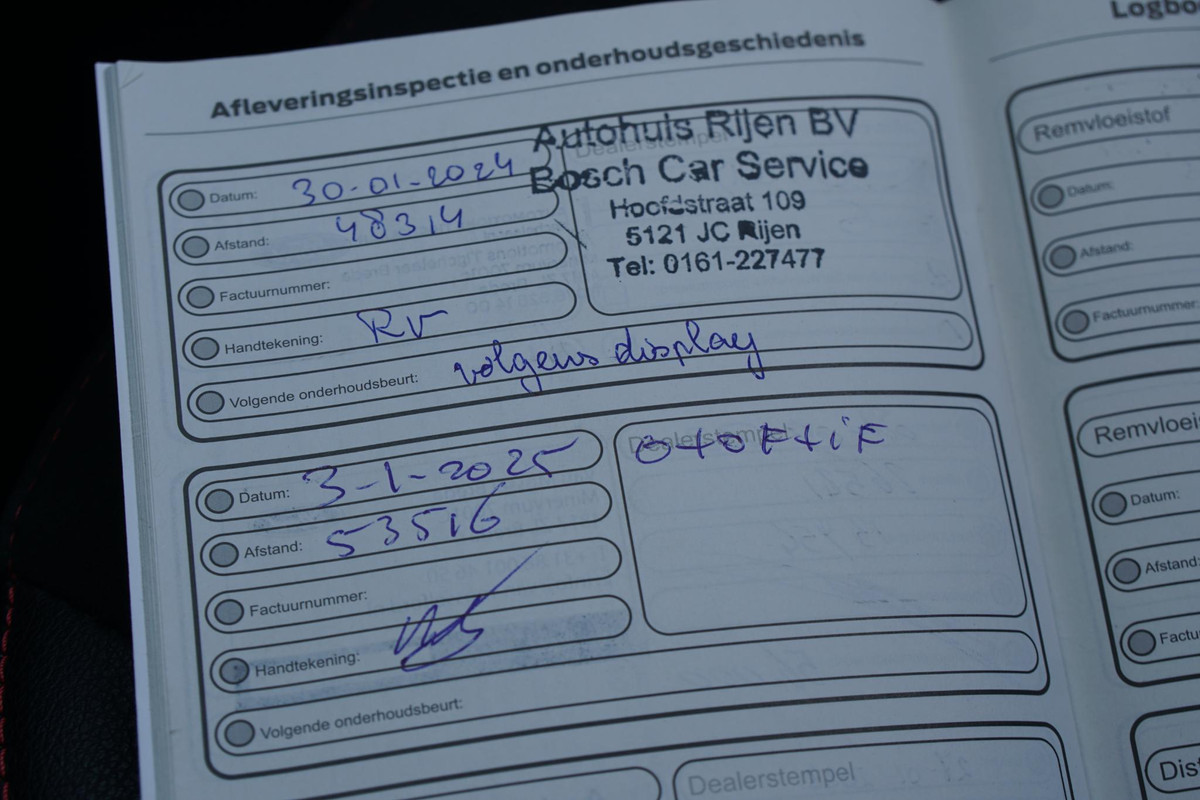 Afleveringsinspectie en onderhoudsgeschiedenis
Logbo
Datum: 30-01-2024
Afstand: 48314
Factuurnummer:
Handtekening: RV
Volgende onderhoudsbeurt: volgens display
Dealerstempel
Autohuis Rijen BV
Bosch Car Service
Hoofdstraat 109
5121 JC Rijen
Tel: 0161-227477
Datum: 3-1-2025
Afstand: 53516
Factuurnummer:
Handtekening:
Volgende onderhoudsbeurt:
Dealerstempel:
OtoFtiF
Dealerstempel
Remvloeistof
Datum:
Afstand:
Factuurnummer
Remvloeis
Datum:
Afstand:
Factu
Dist